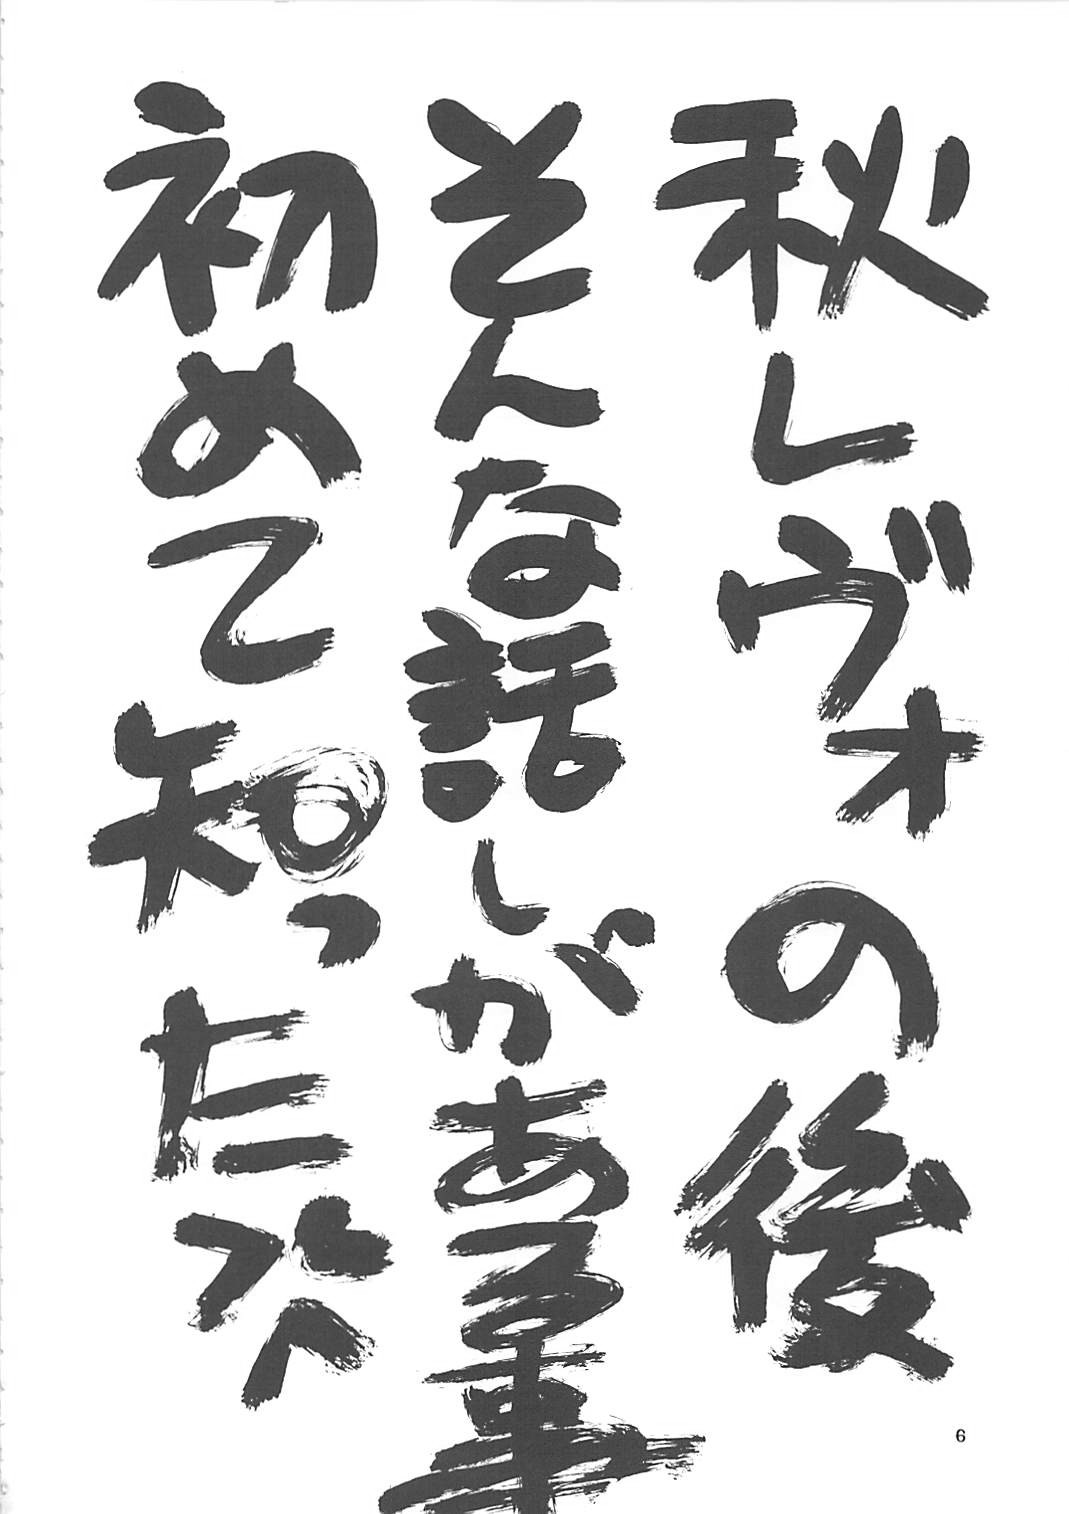 秋レヴォの後
そんな話しがある事
初めて知った
6